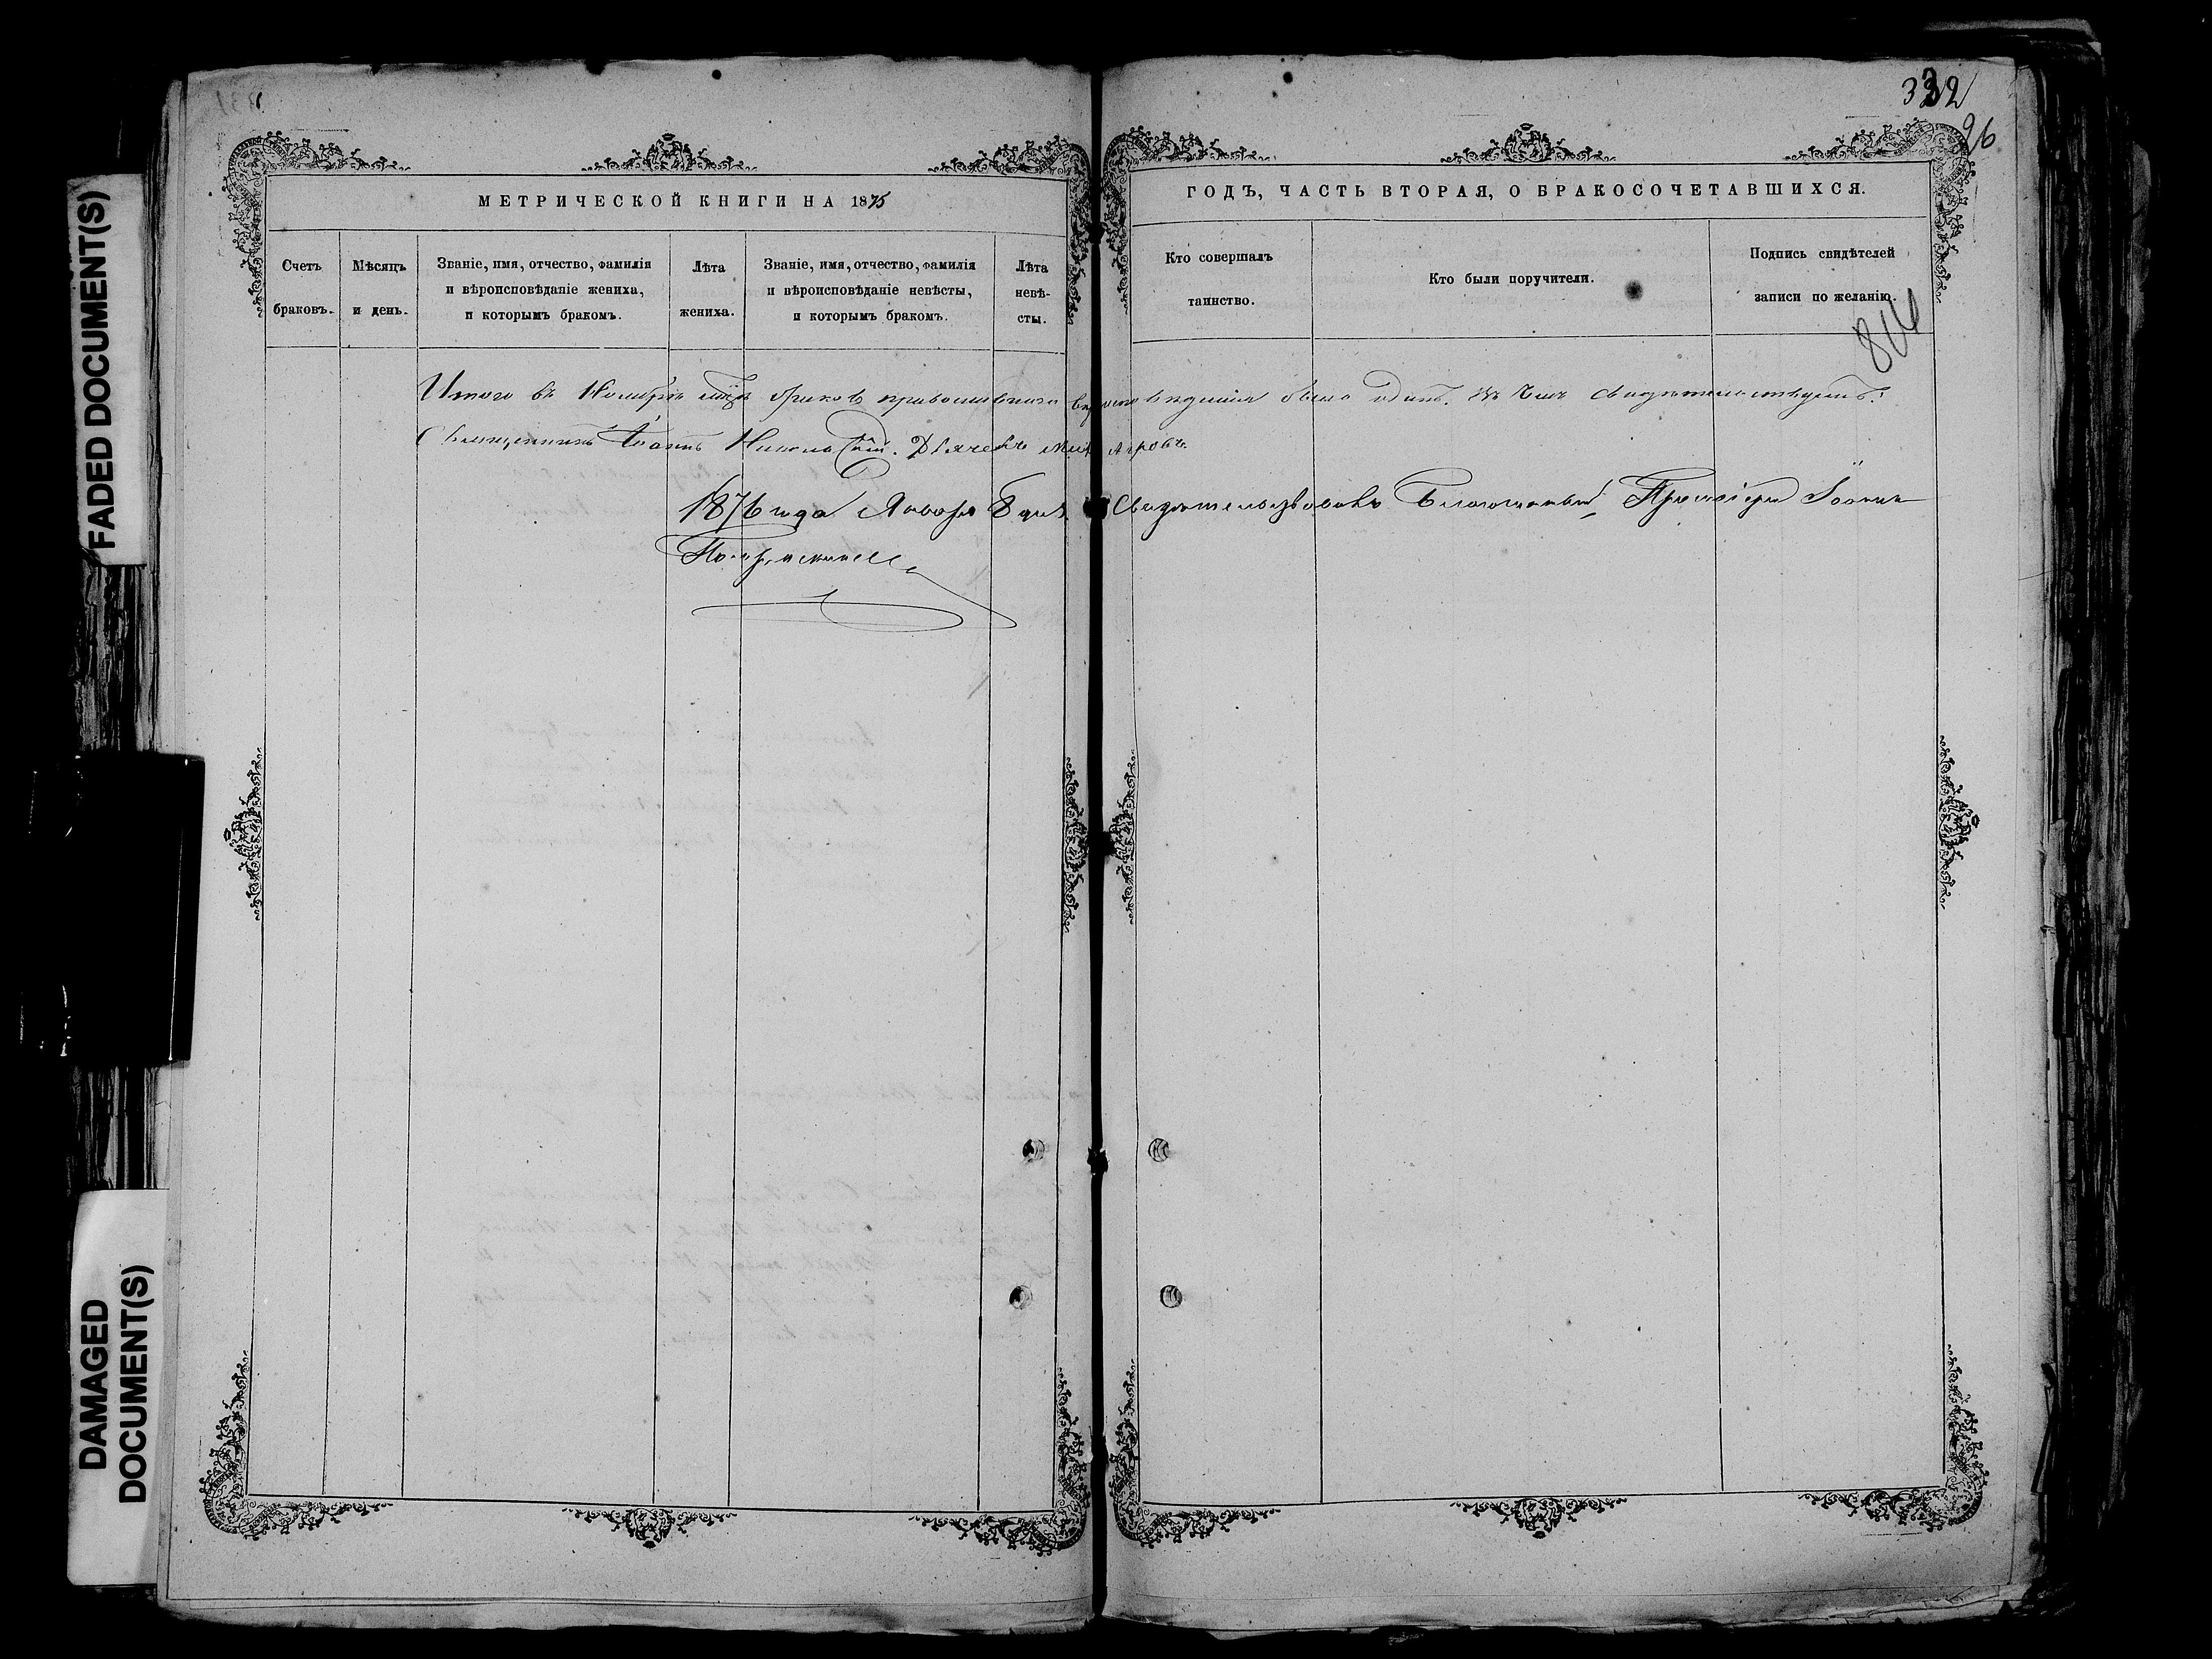 332
96
МЕТРИЧЕСКОЙ КНИГИ НА 1875
ГОДЪ, ЧАСТЬ ВТОРАЯ, О БРАКОСОЧЕТАВШИХСЯ.
Счетъ браковъ.
Мѣсяцъ и день.
Званіе, имя, отчество, фамилія
и вѣроисповѣданіе жениха,
и которымъ бракомъ.
Лѣта
жениха.
Званіе, имя, отчество, фамилія
и вѣроисповѣданіе невѣсты,
и которымъ бракомъ.
Лѣта
невѣ-
сты.
Кто совершалъ
таинство.
Кто были поручители.
Подпись свидѣтелей
записи по желанію.
Итого въ Ноябрѣ мцѣ браковъ православнаго вѣроисповеданія было одинъ. Въ чемъ свидѣтельствуемъ:
Священникъ Іоаннъ Никольскій. Дьячекъ
1876 года Января 8 дня Свидѣтельствовалъ Благочинный, Іоаннъ
FADED DOCUMENT(S)
DAMAGED
DOCUMENT(S)